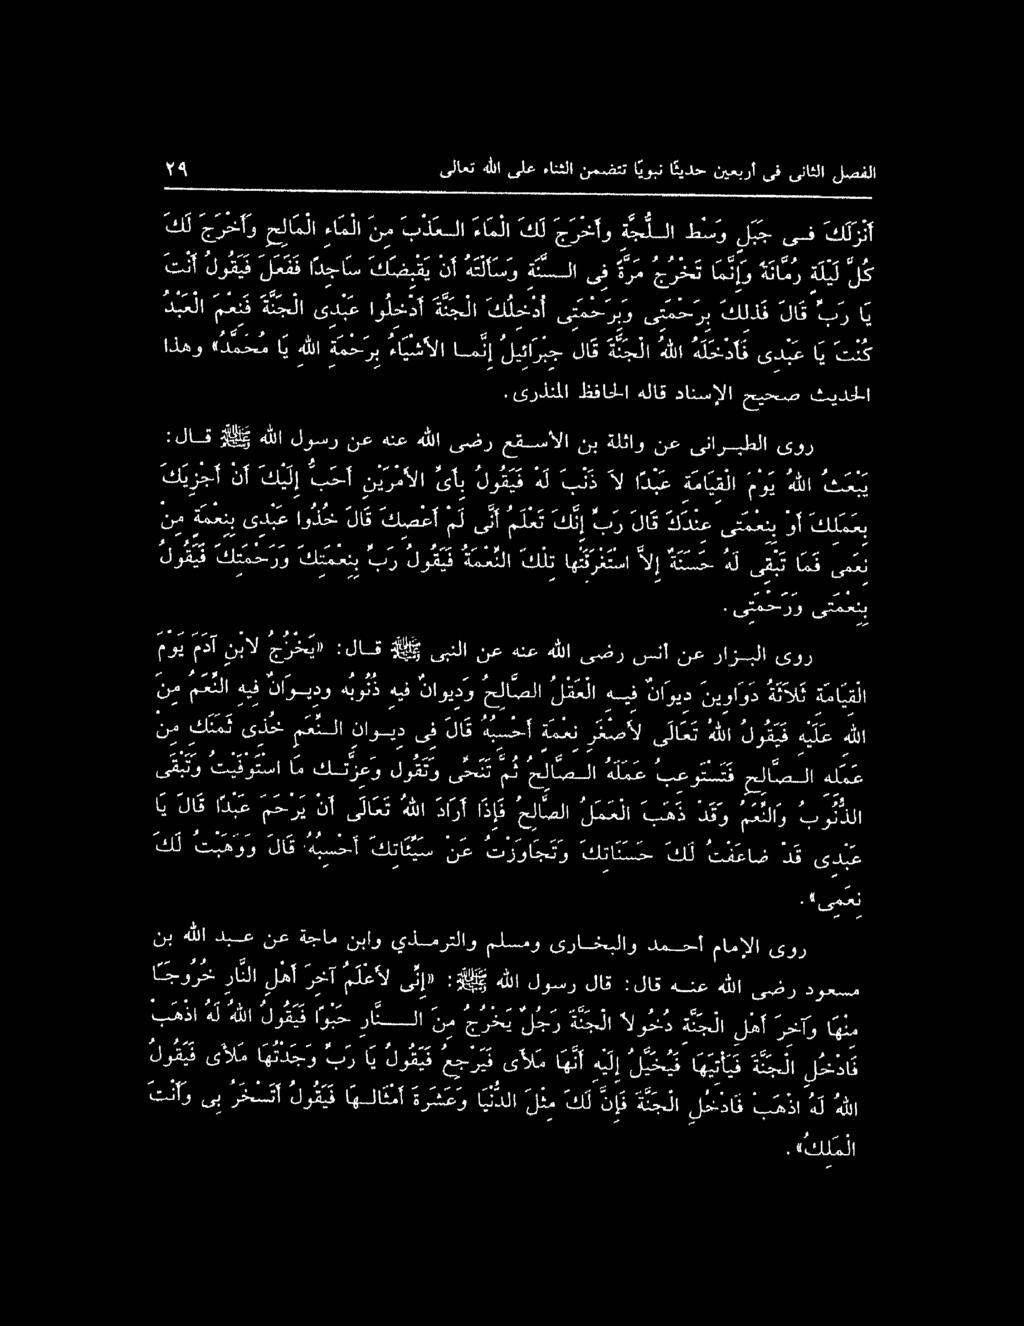 الفصل الثانى فى أربعين حديثًا نبويًا تتضمن الثناء على الله تعالى ٢٩
أَنْزَلَكَ فِى جَبَلٍ وَسْطَ اللُّجَّةِ وأَخْرَجَ لَكَ الْمَاءَ الْعَذْبَ مِنَ الْمَاءِ الْمَالِحِ وَأَخْرَجَ لَكَ
كُلَّ لَيْلَةٍ رُمَّانَةً وَإِنَّمَا تَخْرُجُ مَرَّةً فِى السَّنَةِ وَسَأَلْتَهُ أَنْ يَقْبِضَكَ سَاجِدًا فَفَعَلَ فَيَقُولُ أَنْتَ
يَا رَبِّ قَالَ فَذلِكَ بِرَحْمَتِى وَبِرَحْمَتِى أُدْخِلُكَ الْجَنَّةَ أَدْخِلُوا عَبْدِى الْجَنَّةَ فَنِعْمَ الْعَبْدُ
كُنْتَ يَا عَبْدِى فَأَدْخَلَهُ اللهُ الْجَنَّةَ قَالَ جِبْرَائِيلُ إِنَّمَا الأَشْيَاءُ بِرَحْمَةِ اللهِ يَا مُحَمَّدُ» وهذا
الحديث صحيح الإسناد قاله الحافظ المنذرى.
روى الطبرانى عن واثلة بن الأسقع رضى الله عنه عن رسول الله ﷺ قال:
يَبْعَثُ اللهُ يَوْمَ الْقِيَامَةِ عَبْدًا لاَ ذَنْبَ لَهُ فَيَقُولُ بِأَىِّ الأَمْرَيْنِ أَحَبُّ إِلَيْكَ أَنْ أَجْزِيَكَ
بِعَمَلِكَ أَوْ بِنِعْمَتِى عِنْدَكَ قَالَ رَبِّ إِنَّكَ تَعْلَمُ أَنِّى لَمْ أَعْصِكَ قَالَ خُذُوا عَبْدِى بِنِعْمَةٍ مِنْ
نِعَمِى فَمَا تَبْقَى لَهُ حَسَنَةٌ إِلاَّ اسْتَغْرَقَتْهَا تِلْكَ النِّعْمَةُ فَيَقُولُ رَبِّ بِنِعْمَتِكَ وَرَحْمَتِكَ فَيَقُولُ
بِنِعْمَتِى وَرَحْمَتِى.
روى البزار عن أنس رضى الله عنه عن النبى ﷺ قال: «يَخْرُجُ لابْنِ آدَمَ يَوْمَ
الْقِيَامَةِ ثَلاَثَةُ دَوَاوِينَ دِيوَانٌ فِيهِ الْعَمَلُ الصَّالِحُ وَدِيوانٌ فِيهِ ذُنُوبُه ودِيوَانٌ فِيهِ النِّعَمُ مِنَ
اللهِ عَلَيْهِ فَيَقُولُ اللهُ تَعَالَى لأَصْغَرِ نِعْمَةٍ أَحْسَبُهُ قَالَ فِى دِيوانِ النِّعَمِ خُذِى ثَمَنَكِ مِنْ
عَمَلِهِ الصَّالِحِ فَتَسْتَوْعِبُ عَمَلَهُ الصَّالِحَ ثُمَّ تَنَحَّى وَتَقُولُ وَعِزَّتِكَ مَا اسْتَوْفَيْتُ وَتَبْقَى
الذُّنُوبُ وَالنِّعَمُ وَقَدْ ذَهَبَ الْعَمَلُ الصَّالِحُ فَإِذَا أَرَادَ اللهُ تَعَالَى أَنْ يَرْحَمَ عَبْدًا قَالَ يَا
عَبْدِى قَدْ ضَاعَفْتُ لَكَ حَسَنَاتِكَ وَتَجَاوَزْتُ عَنْ سَيِّئَاتِكَ أَحْسِبُهُ قَالَ وَوَهَبْتُ لَكَ
نِعَمِى».
روى الإمام أحمد والبخارى ومسلم والترمذي وابن ماجة عن عبد الله بن
مسعود رضى الله عنه قال: قال رسول الله ﷺ: «إِنِّى لأَعْلَمُ آخِرَ أَهْلِ النَّارِ خُرُوجًا
مِنْهَا وَآخِرَ أَهْلِ الْجَنَّةِ دُخُولاً الْجَنَّةَ رَجُلٌ يَخْرُجُ مِنَ النَّارِ حَبْوًا فَيَقُولُ اللهُ لَهُ اذْهَبْ
فَادْخُلِ الْجَنَّةَ فَيَأْتِيَهَا فَيُخَيَّلُ إِلَيْهِ أَنَّهَا مَلأَى فَيَرْجِعُ فَيَقُولُ يَا رَبِّ وَجَدْتُهَا مَلأَى فَيَقُولُ
اللهُ لَهُ اذْهَبْ فَادْخُلِ الْجَنَّةَ فَإِنَّ لَكَ مِثْلَ الدُّنْيَا وَعَشَرَةَ أَمْثَالِهَا فَيَقُولُ أَتَسْخَرُ بِى وَأَنْتَ
الْمَلِكُ».